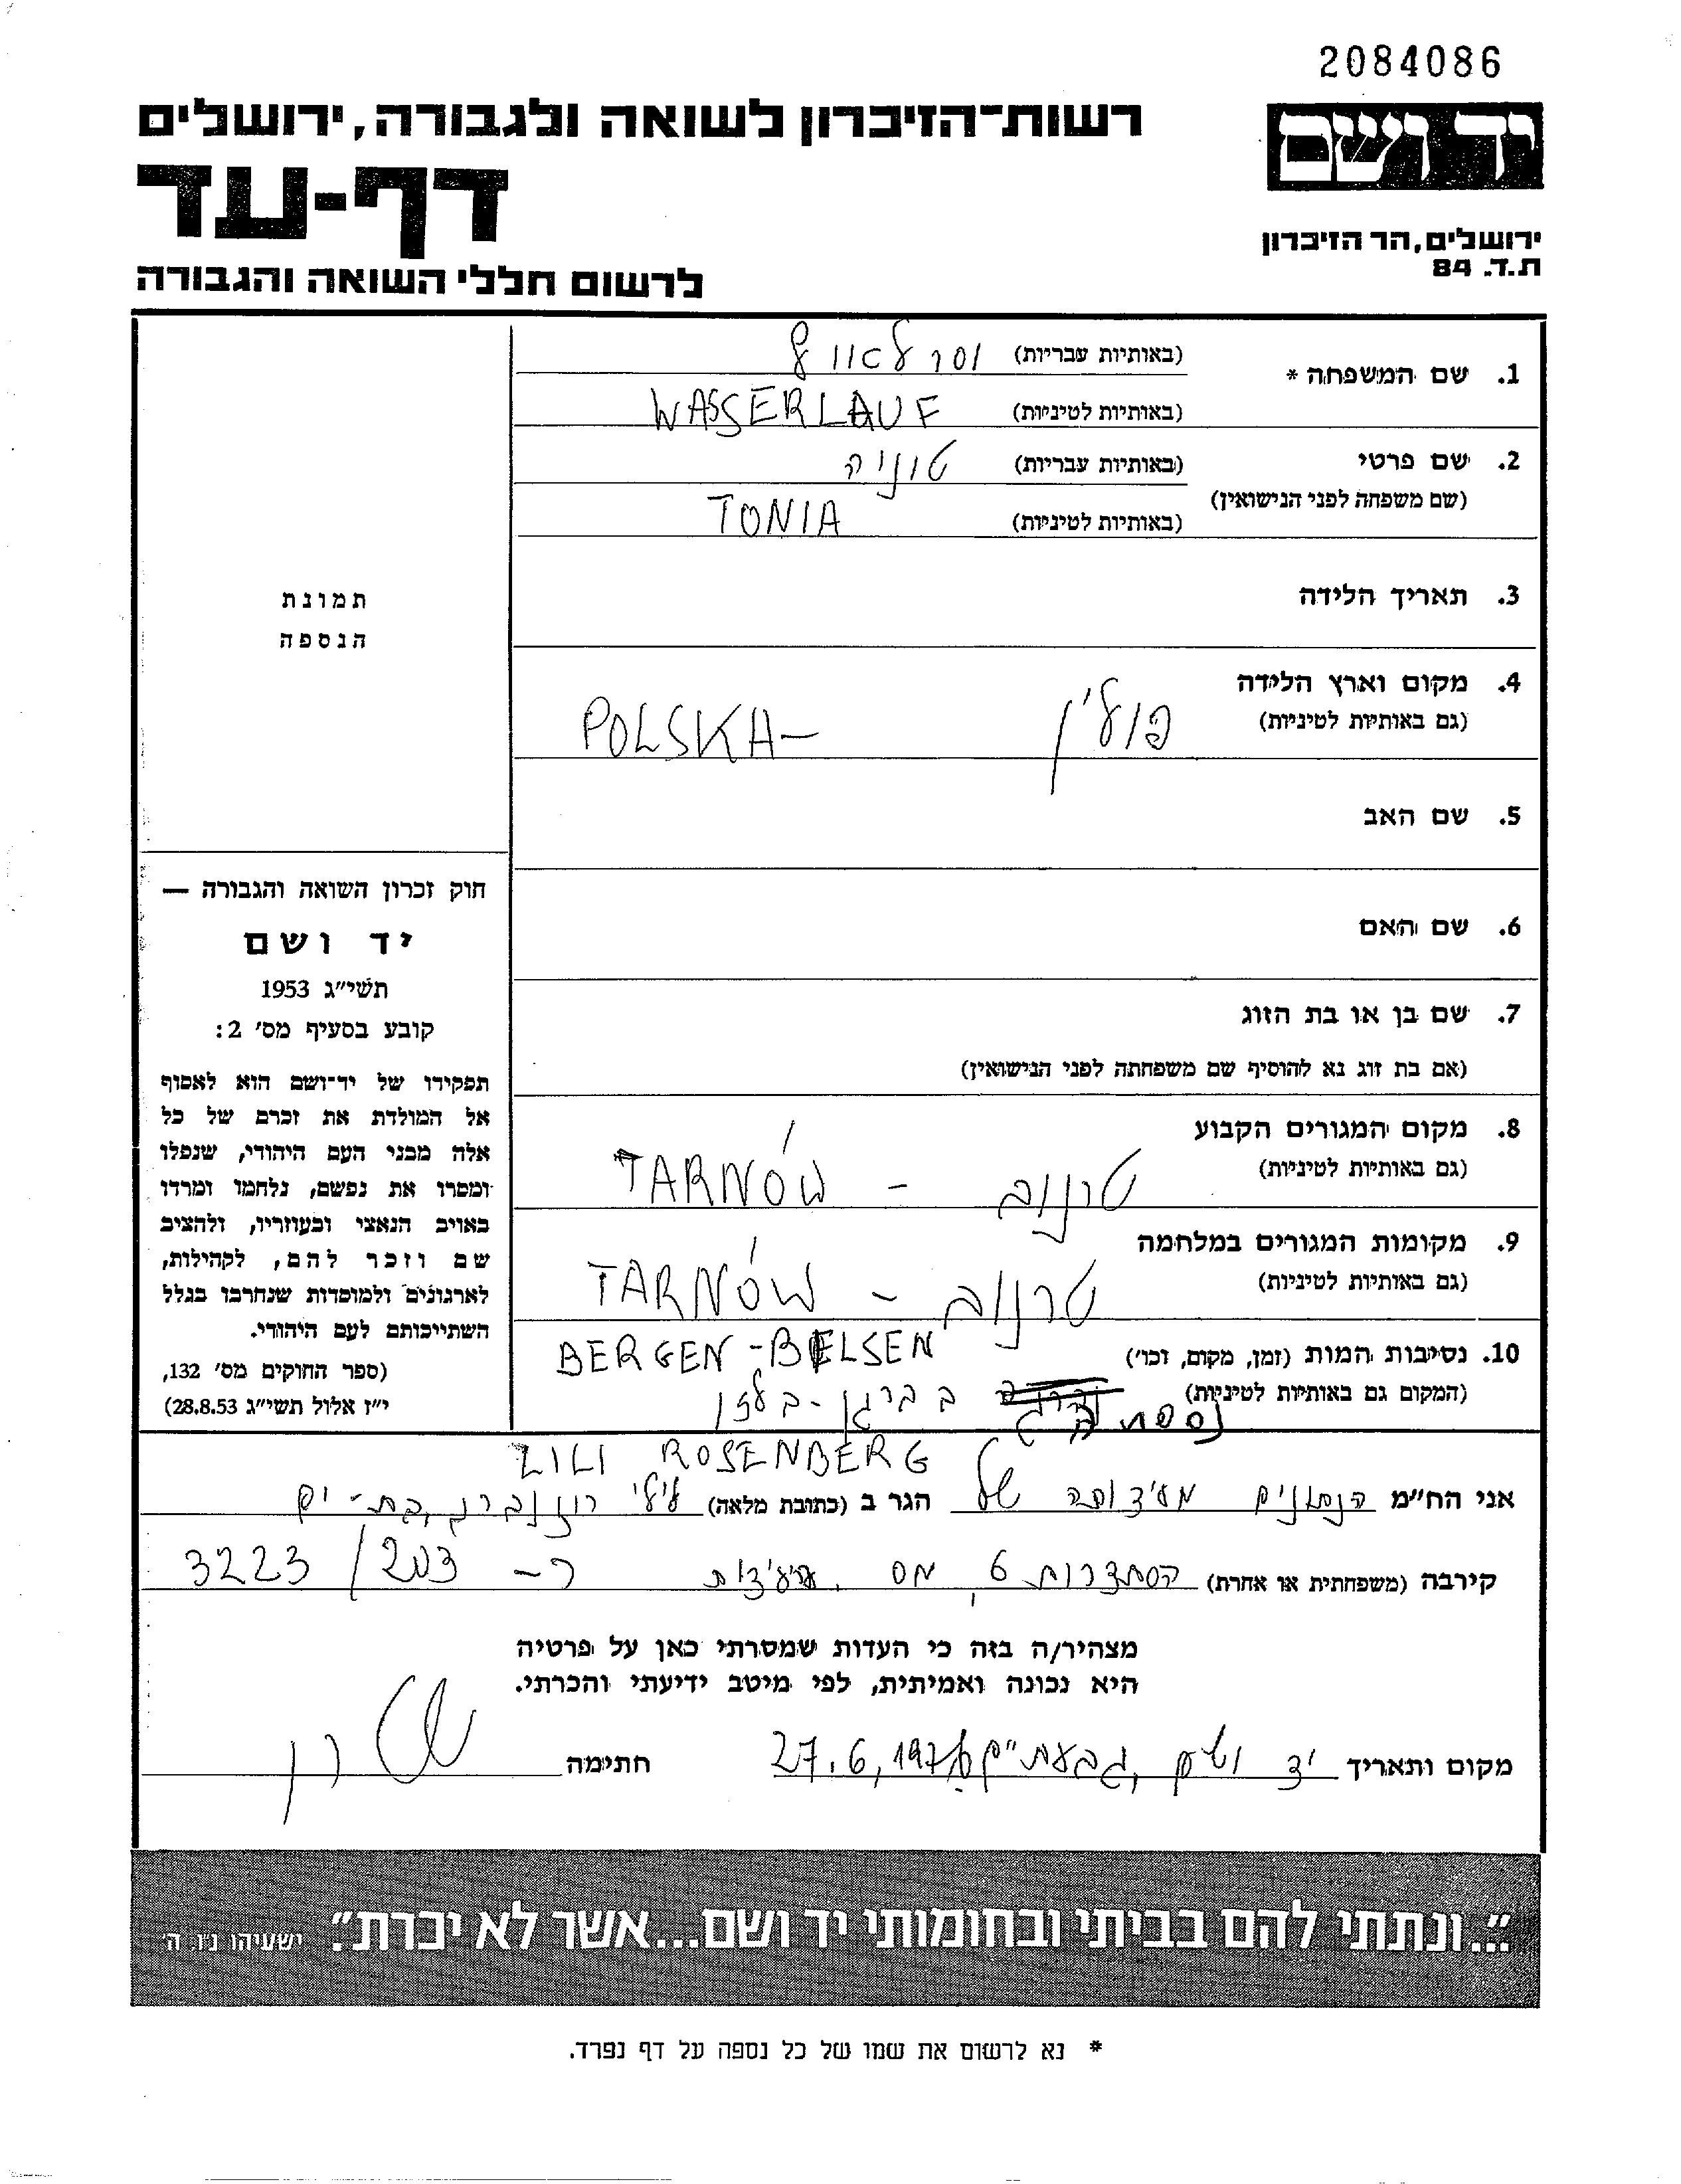 2084086
יד ושם
רשות־הזיכרון לשואה ולגבורה, ירושלים
דף-עד
לרשום חללי השואה והגבורה
ירושלים, הר הזיכרון
ת.ד. 84
1. שם המשפחה * (באותיות עבריות) וסרלאוף
(באותיות לטיניות) WASSERLAUF
2. שם פרטי (באותיות עבריות) טוניה
(שם משפחה לפני הנישואין)
(באותיות לטיניות) TONIA
3. תאריך הלידה
4. מקום וארץ הלידה
(גם באותיות לטיניות) פולין POLSKA -
5. שם האב
6. שם האם
7. שם בן או בת הזוג
(אם בת זוג נא להוסיף שם משפחתה לפני הנישואין)
8. מקום המגורים הקבוע
(גם באותיות לטיניות) טרנוב - TARNÓW
9. מקומות המגורים במלחמה
(גם באותיות לטיניות) טרנוב - TARNÓW
10. נסיבות המות (זמן, מקום, וכו') BERGEN-BELSEN
(המקום גם באותיות לטיניות) ב ברגן-בלזן
נספתה
תמונת
הנספה
חוק זכרון השואה והגבורה —
יד ושם
תשי"ג 1953
קובע בסעיף מס' 2:
תפקידו של יד־ושם הוא לאסוף
אל המולדת את זכרם של כל
אלה מבני העם היהודי, שנפלו
ומסרו את נפשם, נלחמו ומרדו
באויב הנאצי ובעוזריו, ולהציב
שם וזכר להם, לקהילות,
לארגונים ולמוסדות שנחרבו בגלל
השתייכותם לעם היהודי.
(ספר החוקים מס' 132,
י"ז אלול תשי"ג 28.8.53)
ZILI ROSENBERG
אני הח"מ הנתונים מעדותה של הגר ב (כתובת מלאה) צילי רוזנברג, בת-ים
קירבה (משפחתית או אחרת) הסתדרות 6, מס. עדות ר- 203/3223
מצהיר/ה בזה כי העדות שמסרתי כאן על פרטיה
היא נכונה ואמיתית, לפי מיטב ידיעתי והכרתי.
מקום ותאריך יד ושם, גבעת"ים 27.6.1976 חתימה
"...ונתתי להם בביתי ובחומותי יד ושם...אשר לא יכרת". ישעיהו נ"ו, ה'
* נא לרשום את שמו של כל נספה על דף נפרד.